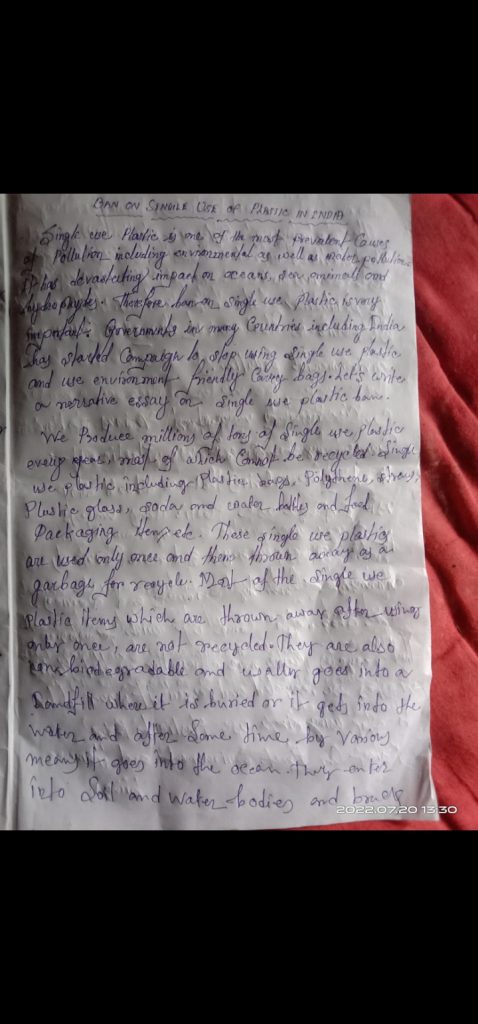 BAN ON SINGLE USE OF PLASTIC IN INDIA
Single use Plastic is one of the most prevalent Causes
of Pollution including environmental as well as water pollution.
It has devastecting impact on oceans, sea animals and
Therefore ban on single use Plastic is very
important. Governments in many Countries including India
has started Campaign to stop using single use plastic
and use environment friendly Carry bags. Let's
a narrative essay on single use plastic bane.
We Produce millions of tons of Single use plastic
every year, most of which Cannot be recycled Single
use plastic, including Plastic bags, Polythene, straws,
Plastic glass, soda and water bottles and food
Packaging Items etc. These single use plastics
are used only once and then thrown away as a
garbage for recycle. Most of the single use
plastic Items which are thrown away after using
only once, are not recycled. They are also
non biodegradable and goes into a
landfill where it is buried or it gets into the
water and after Some time by Various
means it goes into the ocean. they enter
into Soil and water bodies and
2022.07.20 13:30